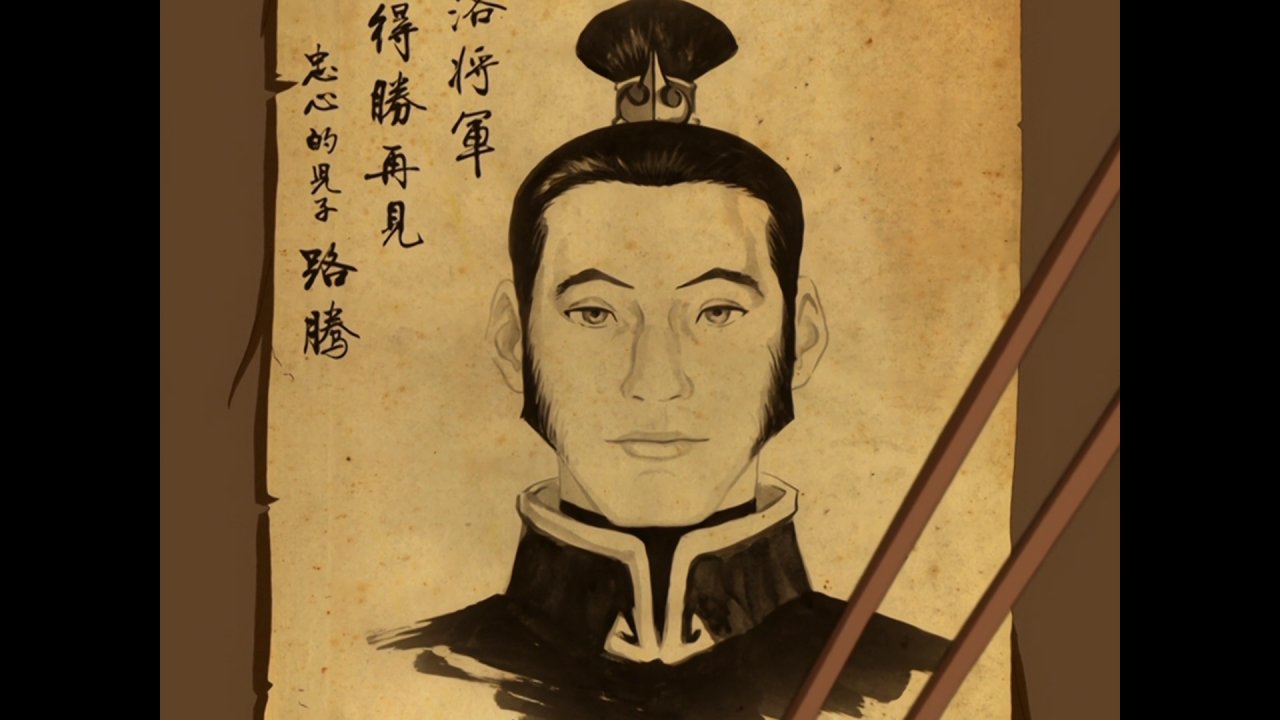 洛將軍
得勝再見
忠心的兒子
路騰